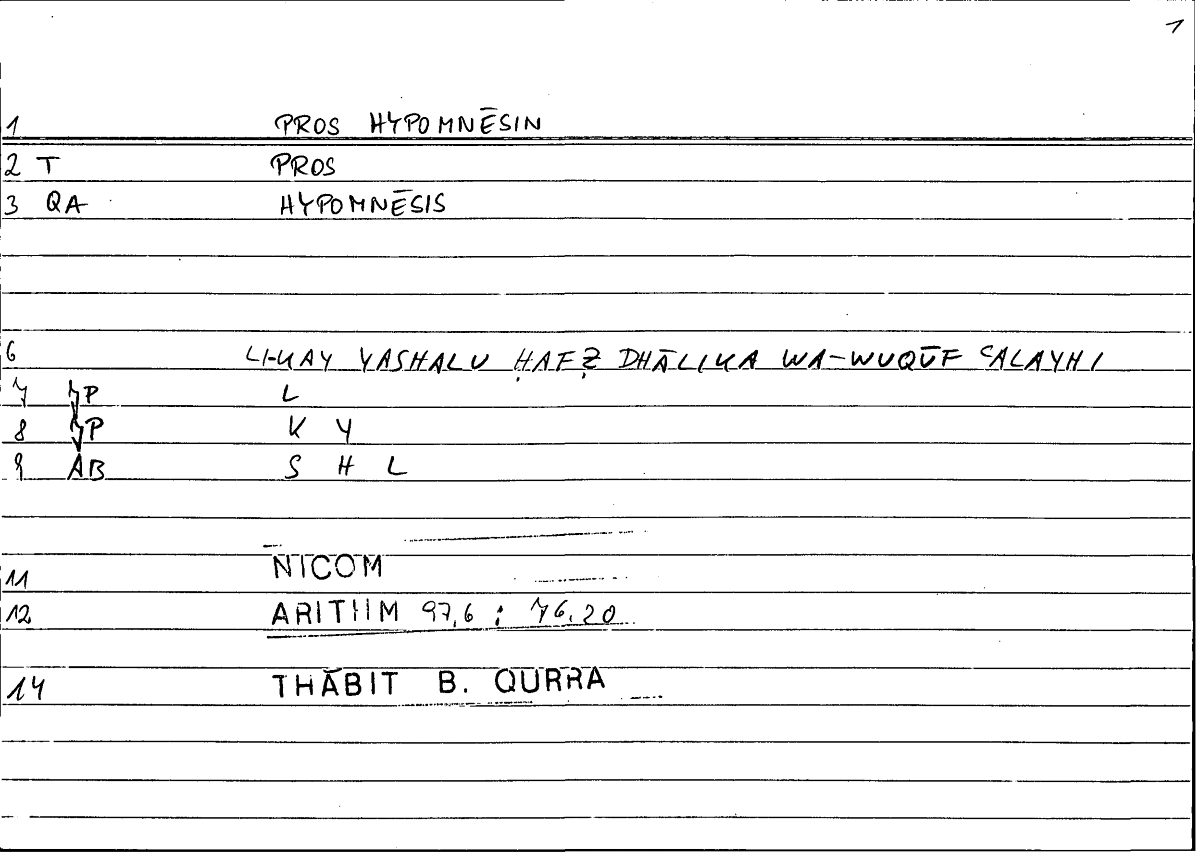 1
1 PROS HYPOMNĒSIN
2 T PROS
3 QA HYPOMNĒSIS
6 LI-KAY YASHALU ḤAFẒ DHĀLIKA WA-WUQŪF ʿALAYHI
7 7P L
8 7P K Y
9 AB S H L
11 NICOM
12 ARITHM 97,6 : 76.20
14 THĀBIT B. QURRA